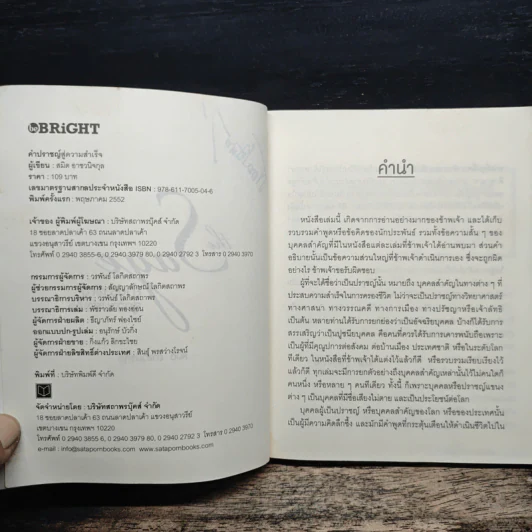 be BRiGHT
คำปราชญ์สู่ความสำเร็จ
ผู้เขียน : สมิต อาชวนิจกุล
ราคา : 109 บาท
เลขมาตรฐานสากลประจำหนังสือ ISBN : 978-611-7005-04-6
พิมพ์ครั้งแรก : พฤษภาคม 2552
เจ้าของ ผู้พิมพ์ผู้โฆษณา : บริษัทสถาพรบุ๊คส์ จำกัด
18 ซอยลาดปลาเค้า 63 ถนนลาดปลาเค้า
แขวงอนุสาวรีย์ เขตบางเขน กรุงเทพฯ 10220
โทรศัพท์ 0 2940 3855-6, 0 2940 3979, 0 2940 2792 3 โทรสาร 0 2940 3970
กรรมการผู้จัดการ : วรพันธ์ โลกิตสถาพร
ผู้ช่วยกรรมการผู้จัดการ : สัญญาลักษณ์ โลกิตสถาพร
บรรณาธิการบริหาร : วรพันธ์ โลกิตสถาพร
บรรณาธิการเล่ม : พัชราวดัย ทองอ่อน
ผู้จัดการฝ่ายผลิต : ธีญาภัทร์ ฟองไชย์
ออกแบบปกรูปเล่ม : อนุรักษ์ บัวกิ่ง
ผู้จัดการฝ่ายขาย : กิ่งแก้ว ลิกระไชย
ผู้จัดการฝ่ายลิขสิทธิ์ต่างประเทศ : สินธุ์ พรสว่างโรจน์
พิมพ์ที่ : บริษัทพิมพ์ดี จำกัด
จัดจำหน่ายโดย : บริษัทสถาพรบุ๊คส์ จำกัด
18 ซอยลาดปลาเค้า 63 ถนนลาดปลาเค้า แขวงอนุสาวรีย์
เขตบางเขน กรุงเทพฯ 10220
โทรศัพท์ 0 2940 3855 6, 0 2940 3979, 0 2940 2792 3 โทรสาร 0 2940 3970
e-mail : info@satapornbooks.com, www.satapornbooks.com
คำนำ
หนังสือเล่มนี้ เกิดจากการอ่านอย่างมากของข้าพเจ้า และได้เก็บ
รวบรวมคำพูดหรือข้อคิดของนักประพันธ์ รวมทั้งข้อความสั้น ๆ ของ
บุคคลสำคัญที่มีในหนังสือแต่ละเล่มที่ข้าพเจ้าได้อ่านพบมา ส่วนคำ
อธิบายนั้นเป็นข้อความส่วนใหญ่ที่ข้าพเจ้าดำเนินการเอง ซึ่งจะถูกผิด
อย่างไร ข้าพเจ้าขอรับผิดชอบ
ผู้ที่จะได้ชื่อว่าเป็นปราชญ์นั้น หมายถึง บุคคลสำคัญในทางต่าง ๆ ที่
ประสบความสำเร็จในการครองชีวิต ไม่ว่าจะเป็นปราชญ์ทางวิทยาศาสตร์
ทางศาสนา ทางวรรณคดี ทางการเมือง ทางปรัชญาหรือเจ้าลัทธิ
เป็นต้น หลายท่านได้รับการยกย่องว่าเป็นอัจฉริยบุคคล บ้างก็ได้รับการ
สรรเสริญว่าเป็นปูชนียบุคคล คือคนที่ควรได้รับการเคารพนับถือเพราะ
เป็นผู้ที่มีคุณูปการต่อสังคม ต่อบ้านเมือง ประเทศชาติ หรือในระดับโลก
ทีเดียว ในหนังสือที่ข้าพเจ้าได้แต่งไว้แล้วก็ดี หรือรวบรวมเรียบเรียงไว้
แล้วก็ดี ทุกเล่มจะมีการยกตัวอย่างถึงบุคคลสำคัญเหล่านั้นไว้ไม่คนใดก็
คนหนึ่ง หรือหลาย ๆ คนทีเดียว ทั้งนี้ ก็เพราะบุคคลหรือปราชญ์แขนง
ต่าง ๆ เป็นบุคคลที่มีชื่อเสียงไม่ตาย และเป็นประโยชน์ต่อโลก
บุคคลผู้เป็นปราชญ์ หรือบุคคลสำคัญของโลก หรือของประเทศนั้น
เป็นผู้มีความคิดลึกซึ้ง และมักมีคำพูดที่กระตุ้นเตือนให้ดำเนินชีวิตไปใน